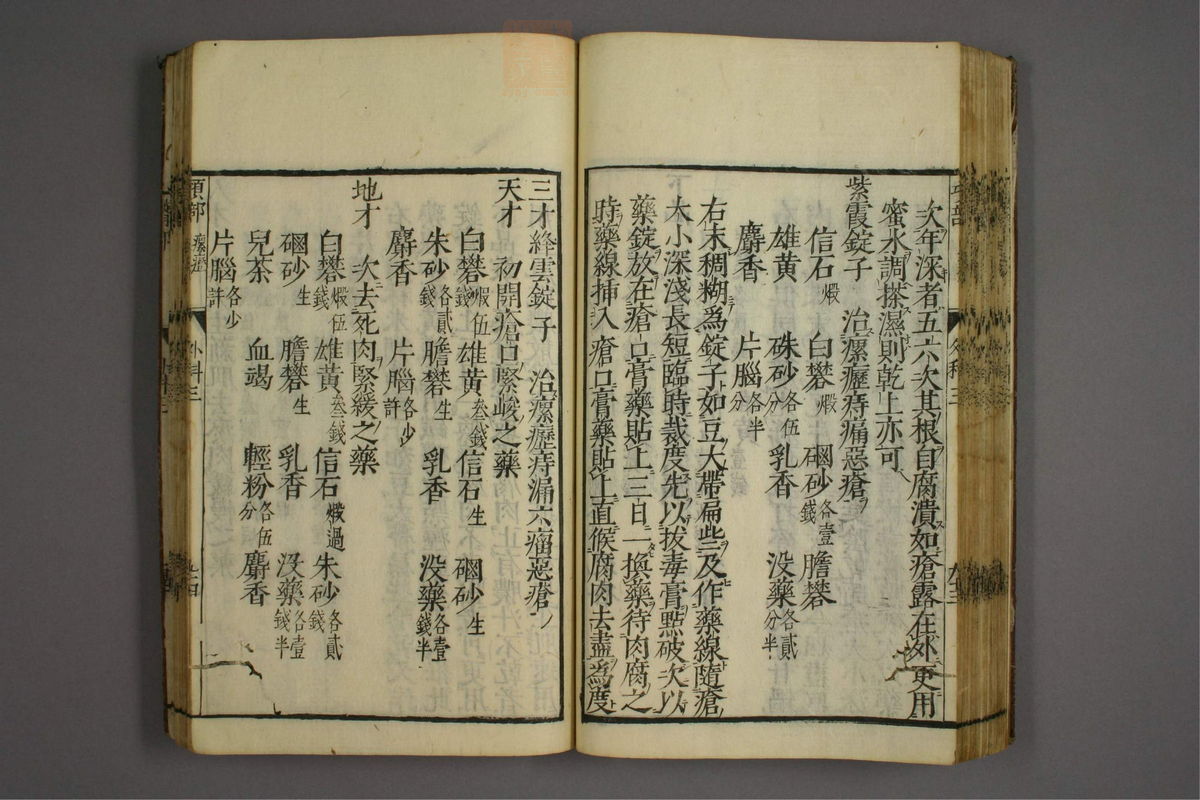 次年深者五六次其根自腐潰如瘡露在外更用
蜜水調搽濕則乾上亦可
紫霞錠子 治瘰癧痔痛惡瘡
信石煆 白礬煆 硇砂各壹錢 膽礬
雄黃 硃砂各伍分 乳香 没藥各貳分半
麝香 片腦各半分
右末稠糊為錠子如豆大帶扁些及作藥線隨瘡
大小深淺長短臨時裁度先以拔毒膏點破次以
藥錠放在瘡口膏藥貼上三日一換藥待肉腐之
時藥線揷入瘡口膏藥貼上直候腐肉去盡為度
三才絳雲錠子 治瘰癧痔漏六瘤惡瘡
天才 初開瘡口緊峻之藥
白礬煆伍錢 雄黃叁錢 信石生 硇砂生
朱砂各貳錢 膽礬生 乳香 没藥各壹錢半
麝香 片腦各少許
地才 次去死肉緊緩之藥
白礬煆伍錢 雄黃叁錢 信石煆過 朱砂各貳錢
硇砂生 膽礬生 乳香 没藥各壹錢半
兒茶 血竭 輕粉各伍分 麝香
片腦各少許
項部 瘰癧 外科三 九四